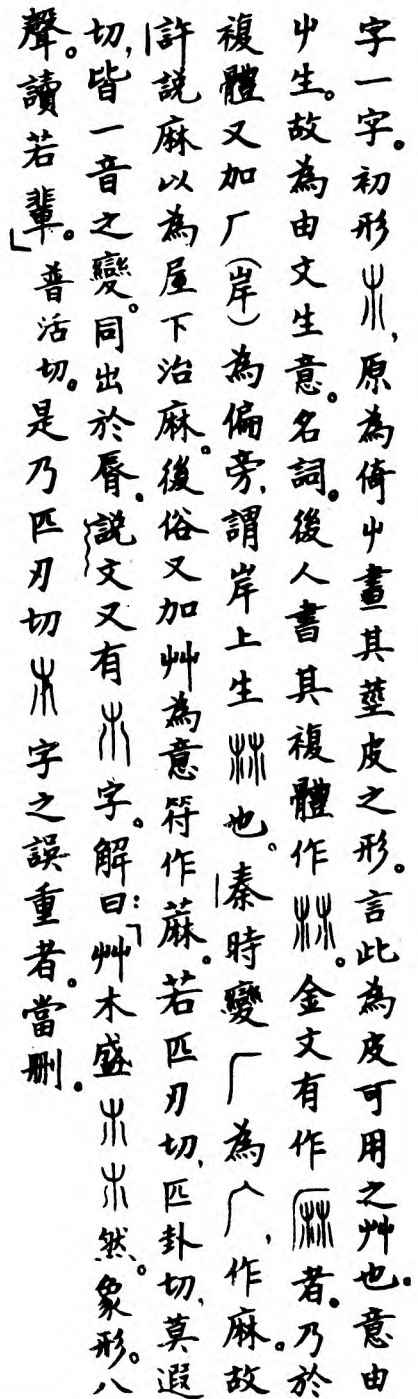 字一字。初形𣎳,原為倚屮畫其莖皮之形。言此為皮可用之艸也。意由
屮生。故為由文生意。名詞。後人書其複體作𣏟。金文有作𠩺者。乃於
複體又加厂(岸)為偏旁,謂岸上生𣏟也。秦時變厂為广,作麻。故
許說麻以為屋下治麻。後俗又加艸為意符作蔴。若匹刃切,匹卦切,莫遐
切,皆一音之變。同出於脣。說文又有𣎵字。解曰:「艸木盛𣎵𣎵然。象形。八
聲。讀若輩。」普活切。是乃匹刃切𣎳字之誤重者。當刪。